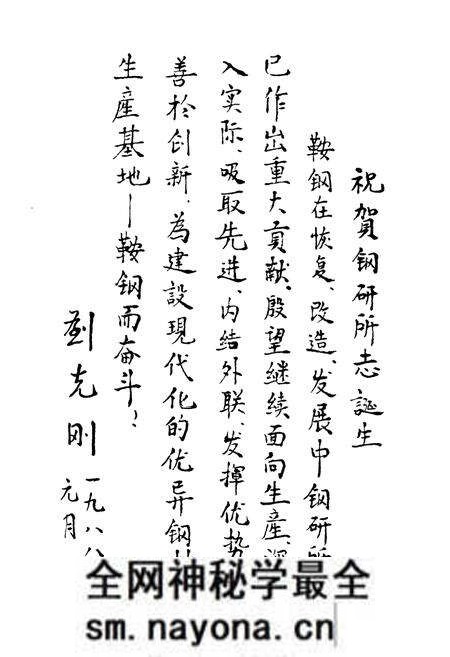 祝賀钢研所志誕生
鞍钢在恢复、改造、发展中钢研所
已作出重大贡献、殷望継续面向生産、深
入实际、吸取先进、内结外联、发揮优势
善於创新、為建設现代化的优异钢材
生産基地—鞍钢而奋斗!
刘克刚
一九八八
元月
全网神秘学最全
sm.nayona.cn